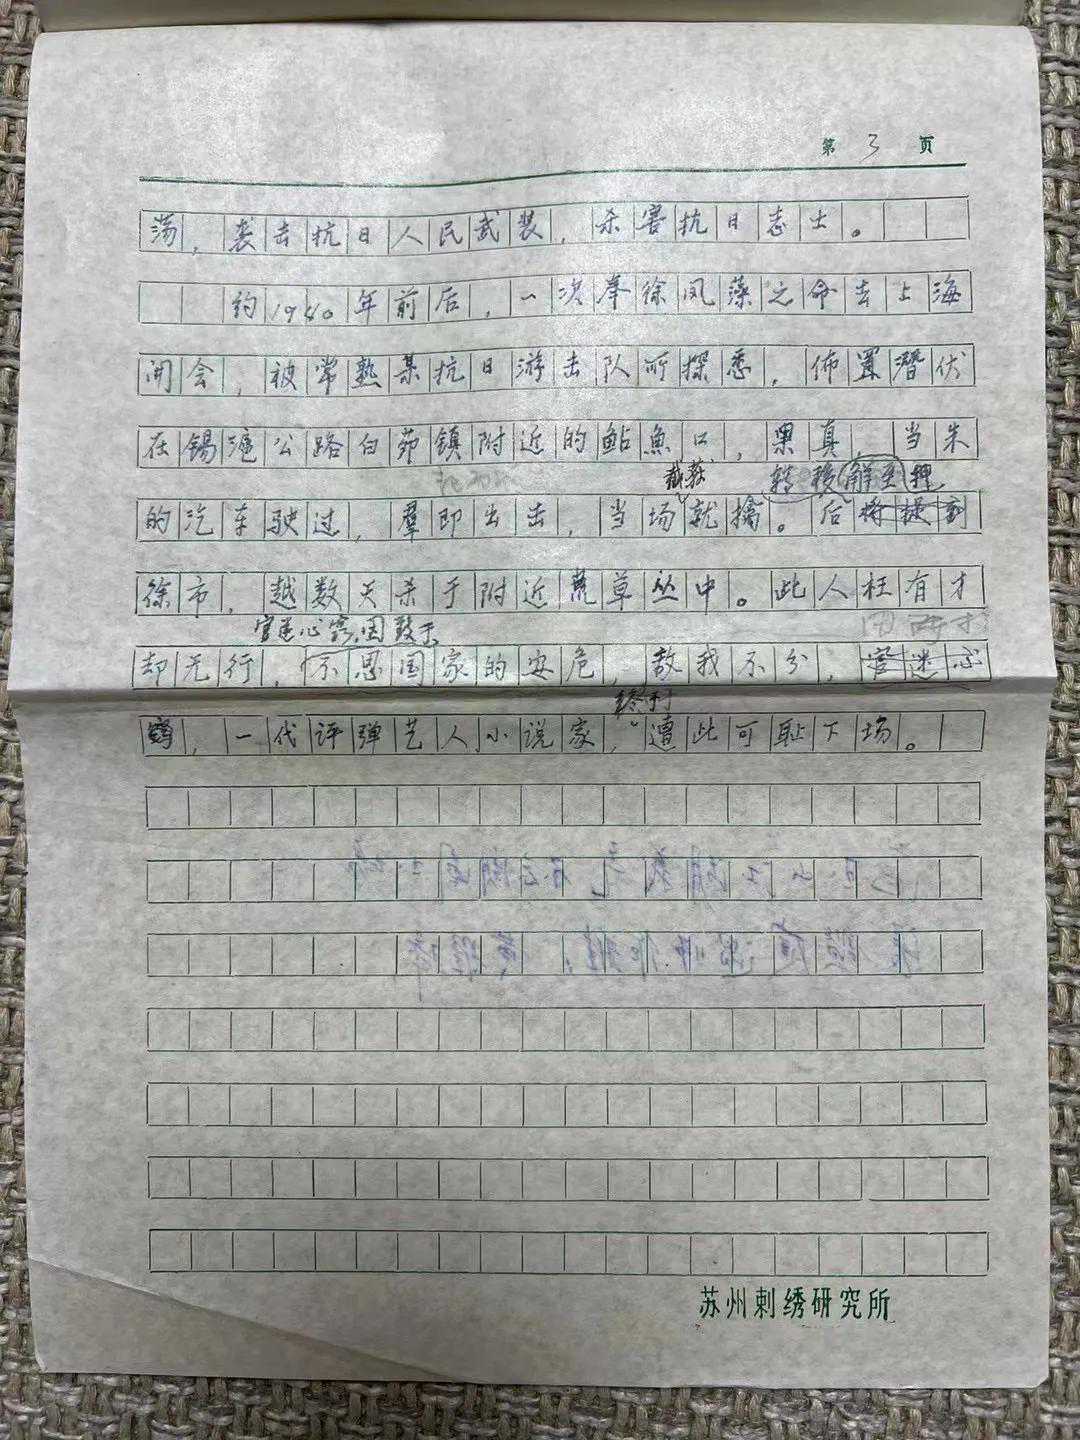 第 3 页
荡，袭击抗日人民武装，杀害抗日志士。
约1940年前后，一次奉徐凤藻之命去上海
开会，被常熟某抗日游击队所探悉，佈置潜伏
在锡滬公路白茆镇附近的鲇魚口，果真 当朱
截获 转移解至
的汽车驶过，羣即出击，当场就擒。后
徐市，越数天杀于附近荒草丛中。此人枉有才
官迷心窍，因致于
却无行，不思国家的安危，敌我不分，官迷心
窍，一代评弹艺人小说家，遭此可耻下场。
终于
苏州刺绣研究所